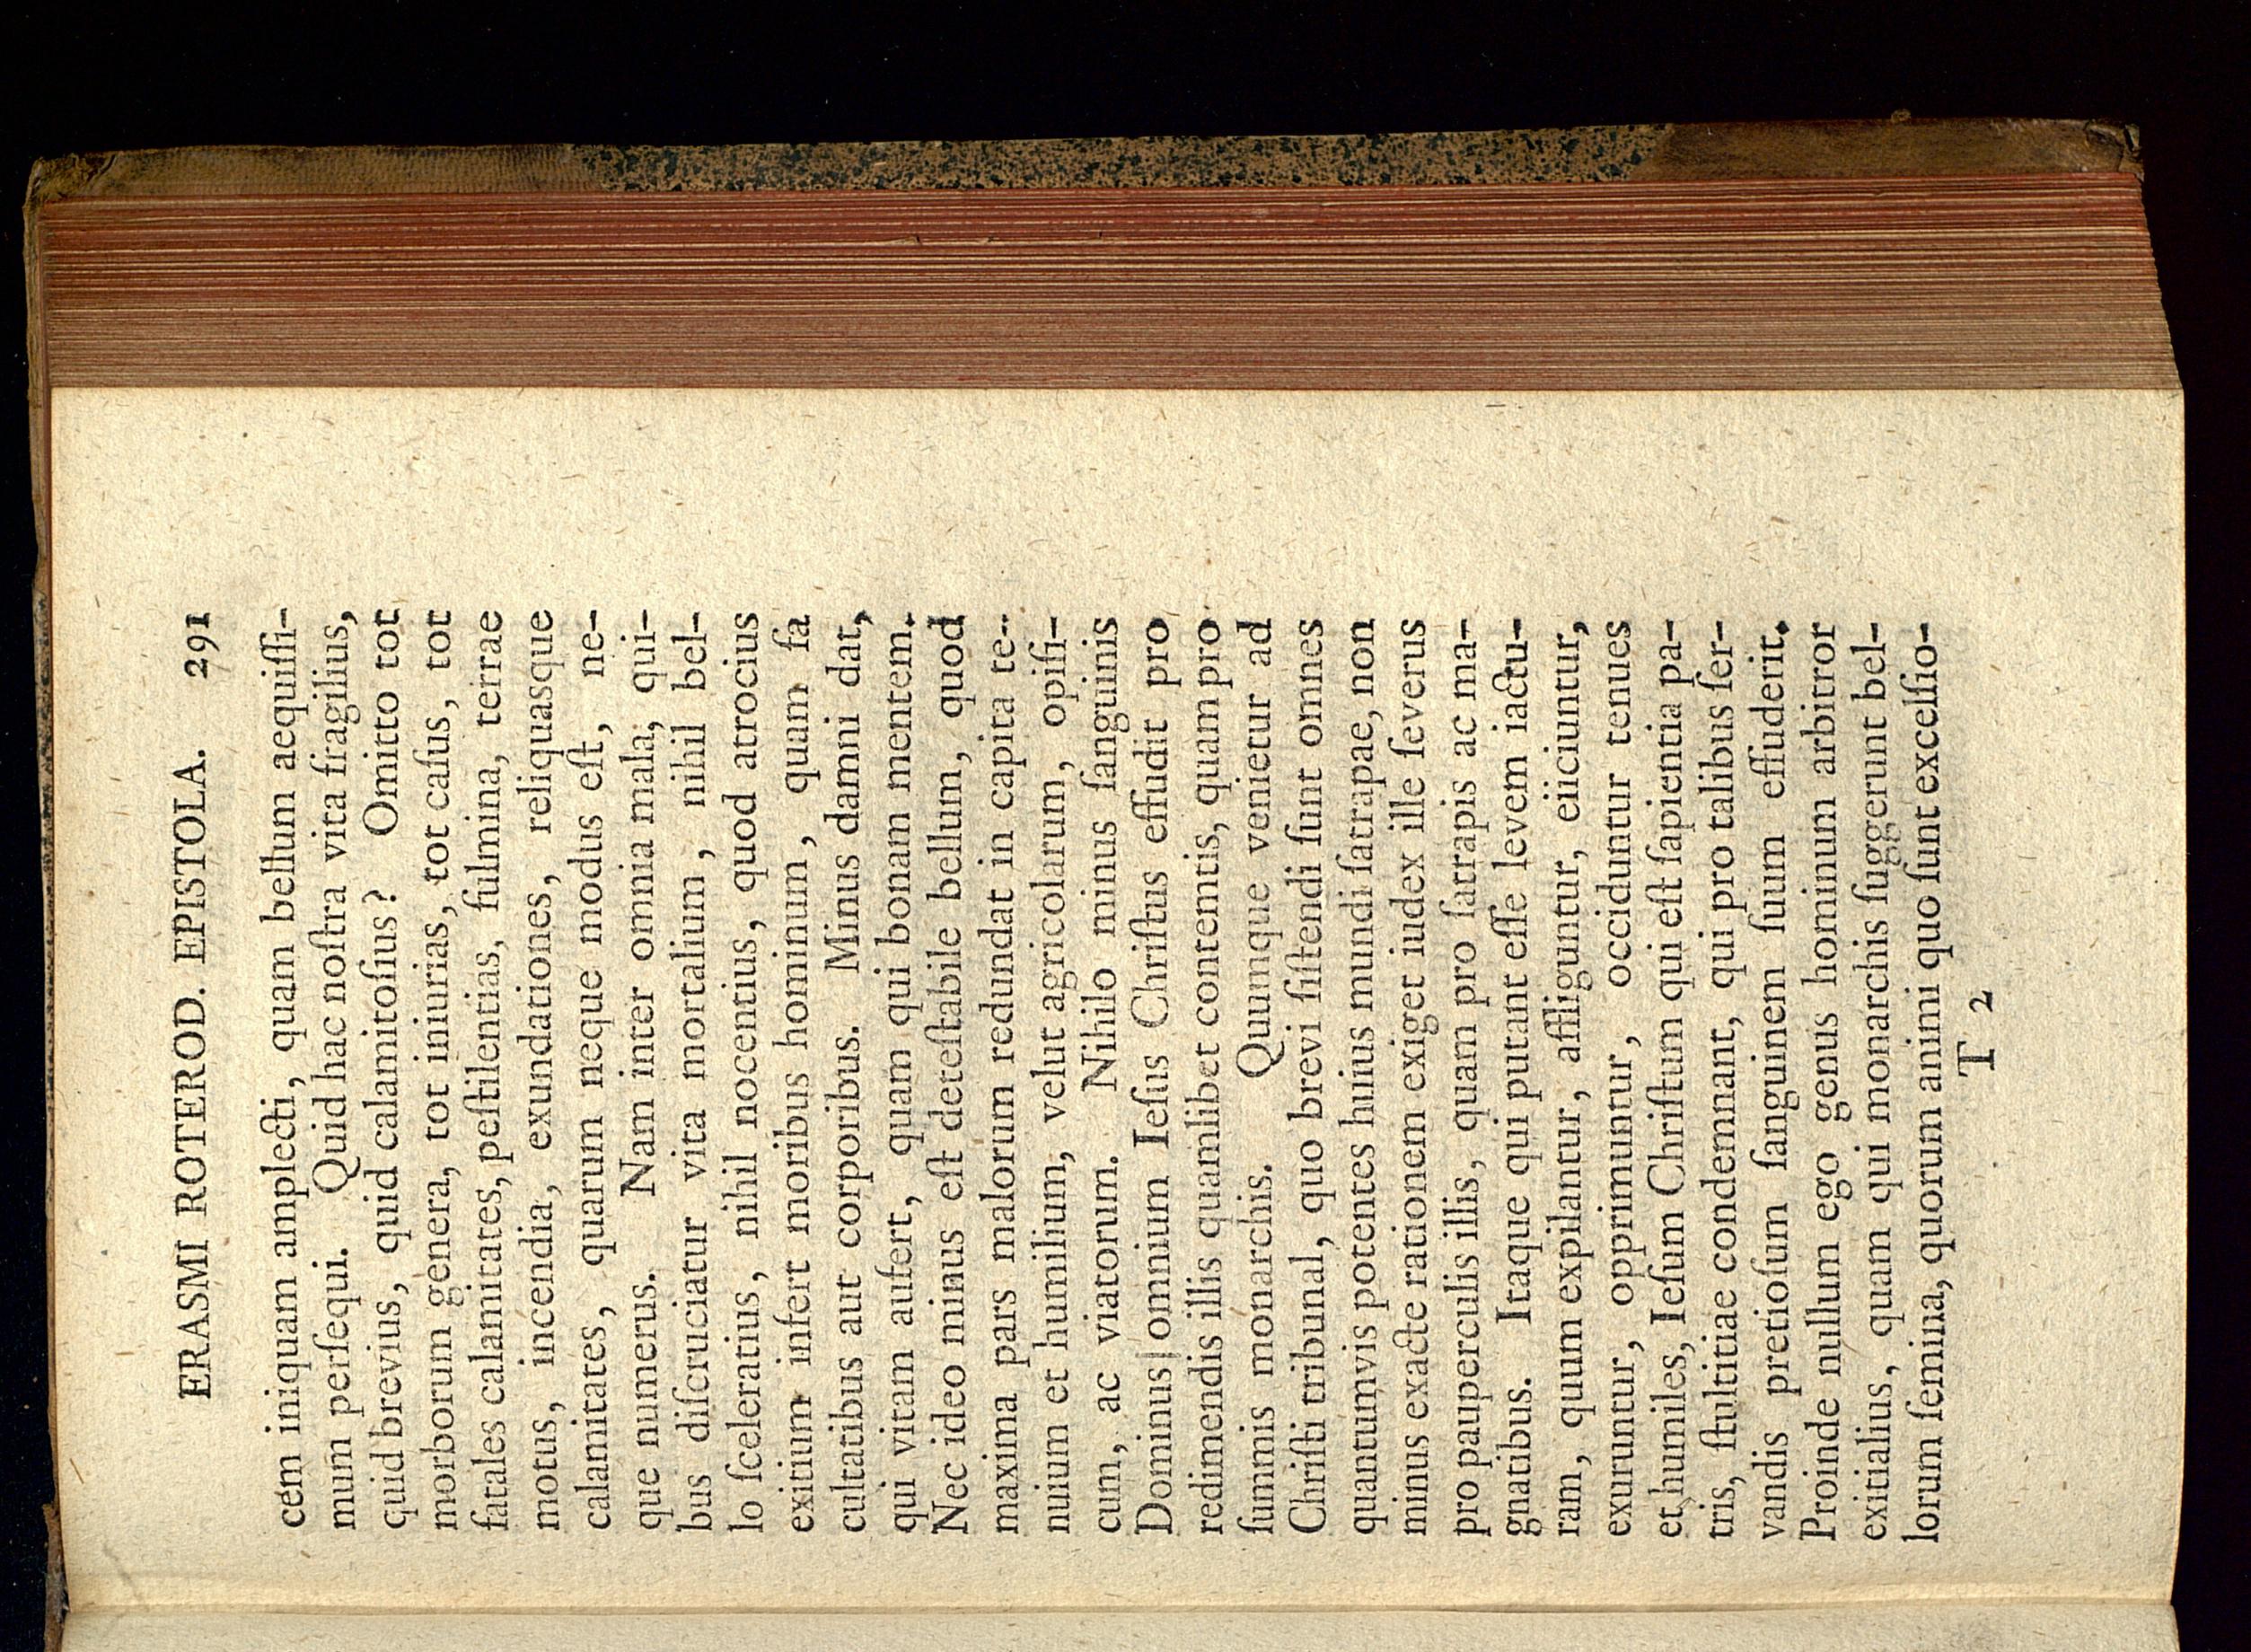 ERASMI ROTEROD. EPISTOLA. 291
cem iniquam amplecti, quam bellum aequiſſi-
mum perſequi. Quid hac noſtra vita fragilius,
quid brevius, quid calamitoſius? Omitto tot
morborum genera, tot iniurias, tot caſus, tot
fatales calamitates, peſtilentias, fulmina, terrae
motus, incendia, exundationes, reliquasque
calamitates, quarum neque modus eſt, ne-
que numerus. Nam inter omnia mala, qui-
bus diſcruciatur vita mortalium, nihil bel-
lo ſceleratius, nihil nocentius, quod atrocius
exitium infert moribus hominum, quam fa
cultatibus aut corporibus. Minus damni dat,
qui vitam aufert, quam qui bonam mentem.
Nec ideo minus eſt deteſtabile bellum, quod
maxima pars malorum redundat in capita te-
nuium et humilium, velut agricolarum, opifi-
cum, ac viatorum. Nihilo minus ſanguinis
Dominus omnium Ieſus Chriſtus effudit pro
redimendis illis quamlibet contentis, quam pro
ſummis monarchis. Quumque venietur ad
Chriſti tribunal, quo brevi ſiſtendi ſunt omnes
quantumvis potentes huius mundi ſatrapae, non
minus exacte rationem exiget iudex ille ſeverus
pro pauperculis illis, quam pro ſatrapis ac ma-
gnatibus. Itaque qui putant eſſe levem iactu-
ram, quum expilantur, affliguntur, eiiciuntur,
exuruntur, opprimuntur, occiduntur tenues
et humiles, Ieſum Chriſtum qui eſt ſapientia pa-
tris, ſtultitiae condemnant, qui pro talibus ſer-
vandis pretioſum ſanguinem ſuum effuderit.
Proinde nullum ego genus hominum arbitror
exitialius, quam qui monarchis ſuggerunt bel-
lorum ſemina, quorum animi quo ſunt excelſio-
T 2